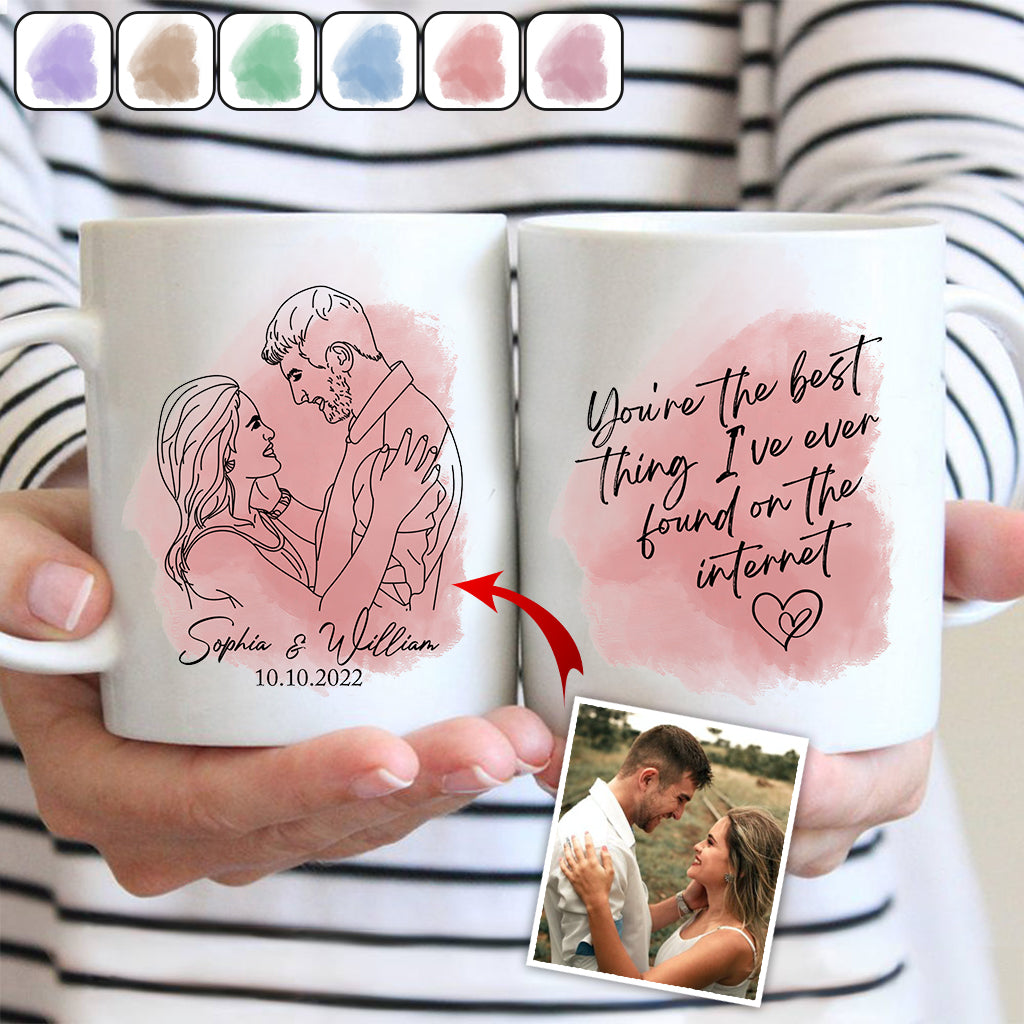 Sophia & William
10.10.2022
You're the best
thing I've ever
found on the
internet